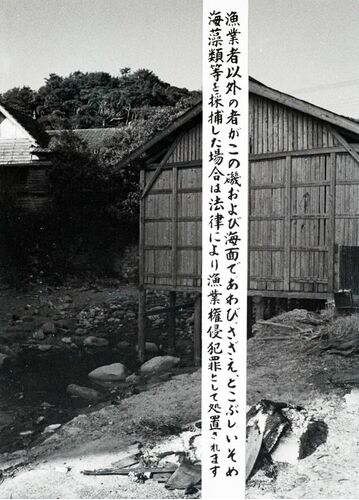 漁業者以外の者がこの磯および海面であわび、さざえ、とこぶし、いそめ
海藻類等を採捕した場合は法律により漁業権侵犯罪として処置されます